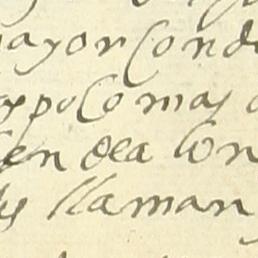 mayor Cond
xpo Comas
en dea Con
llaman